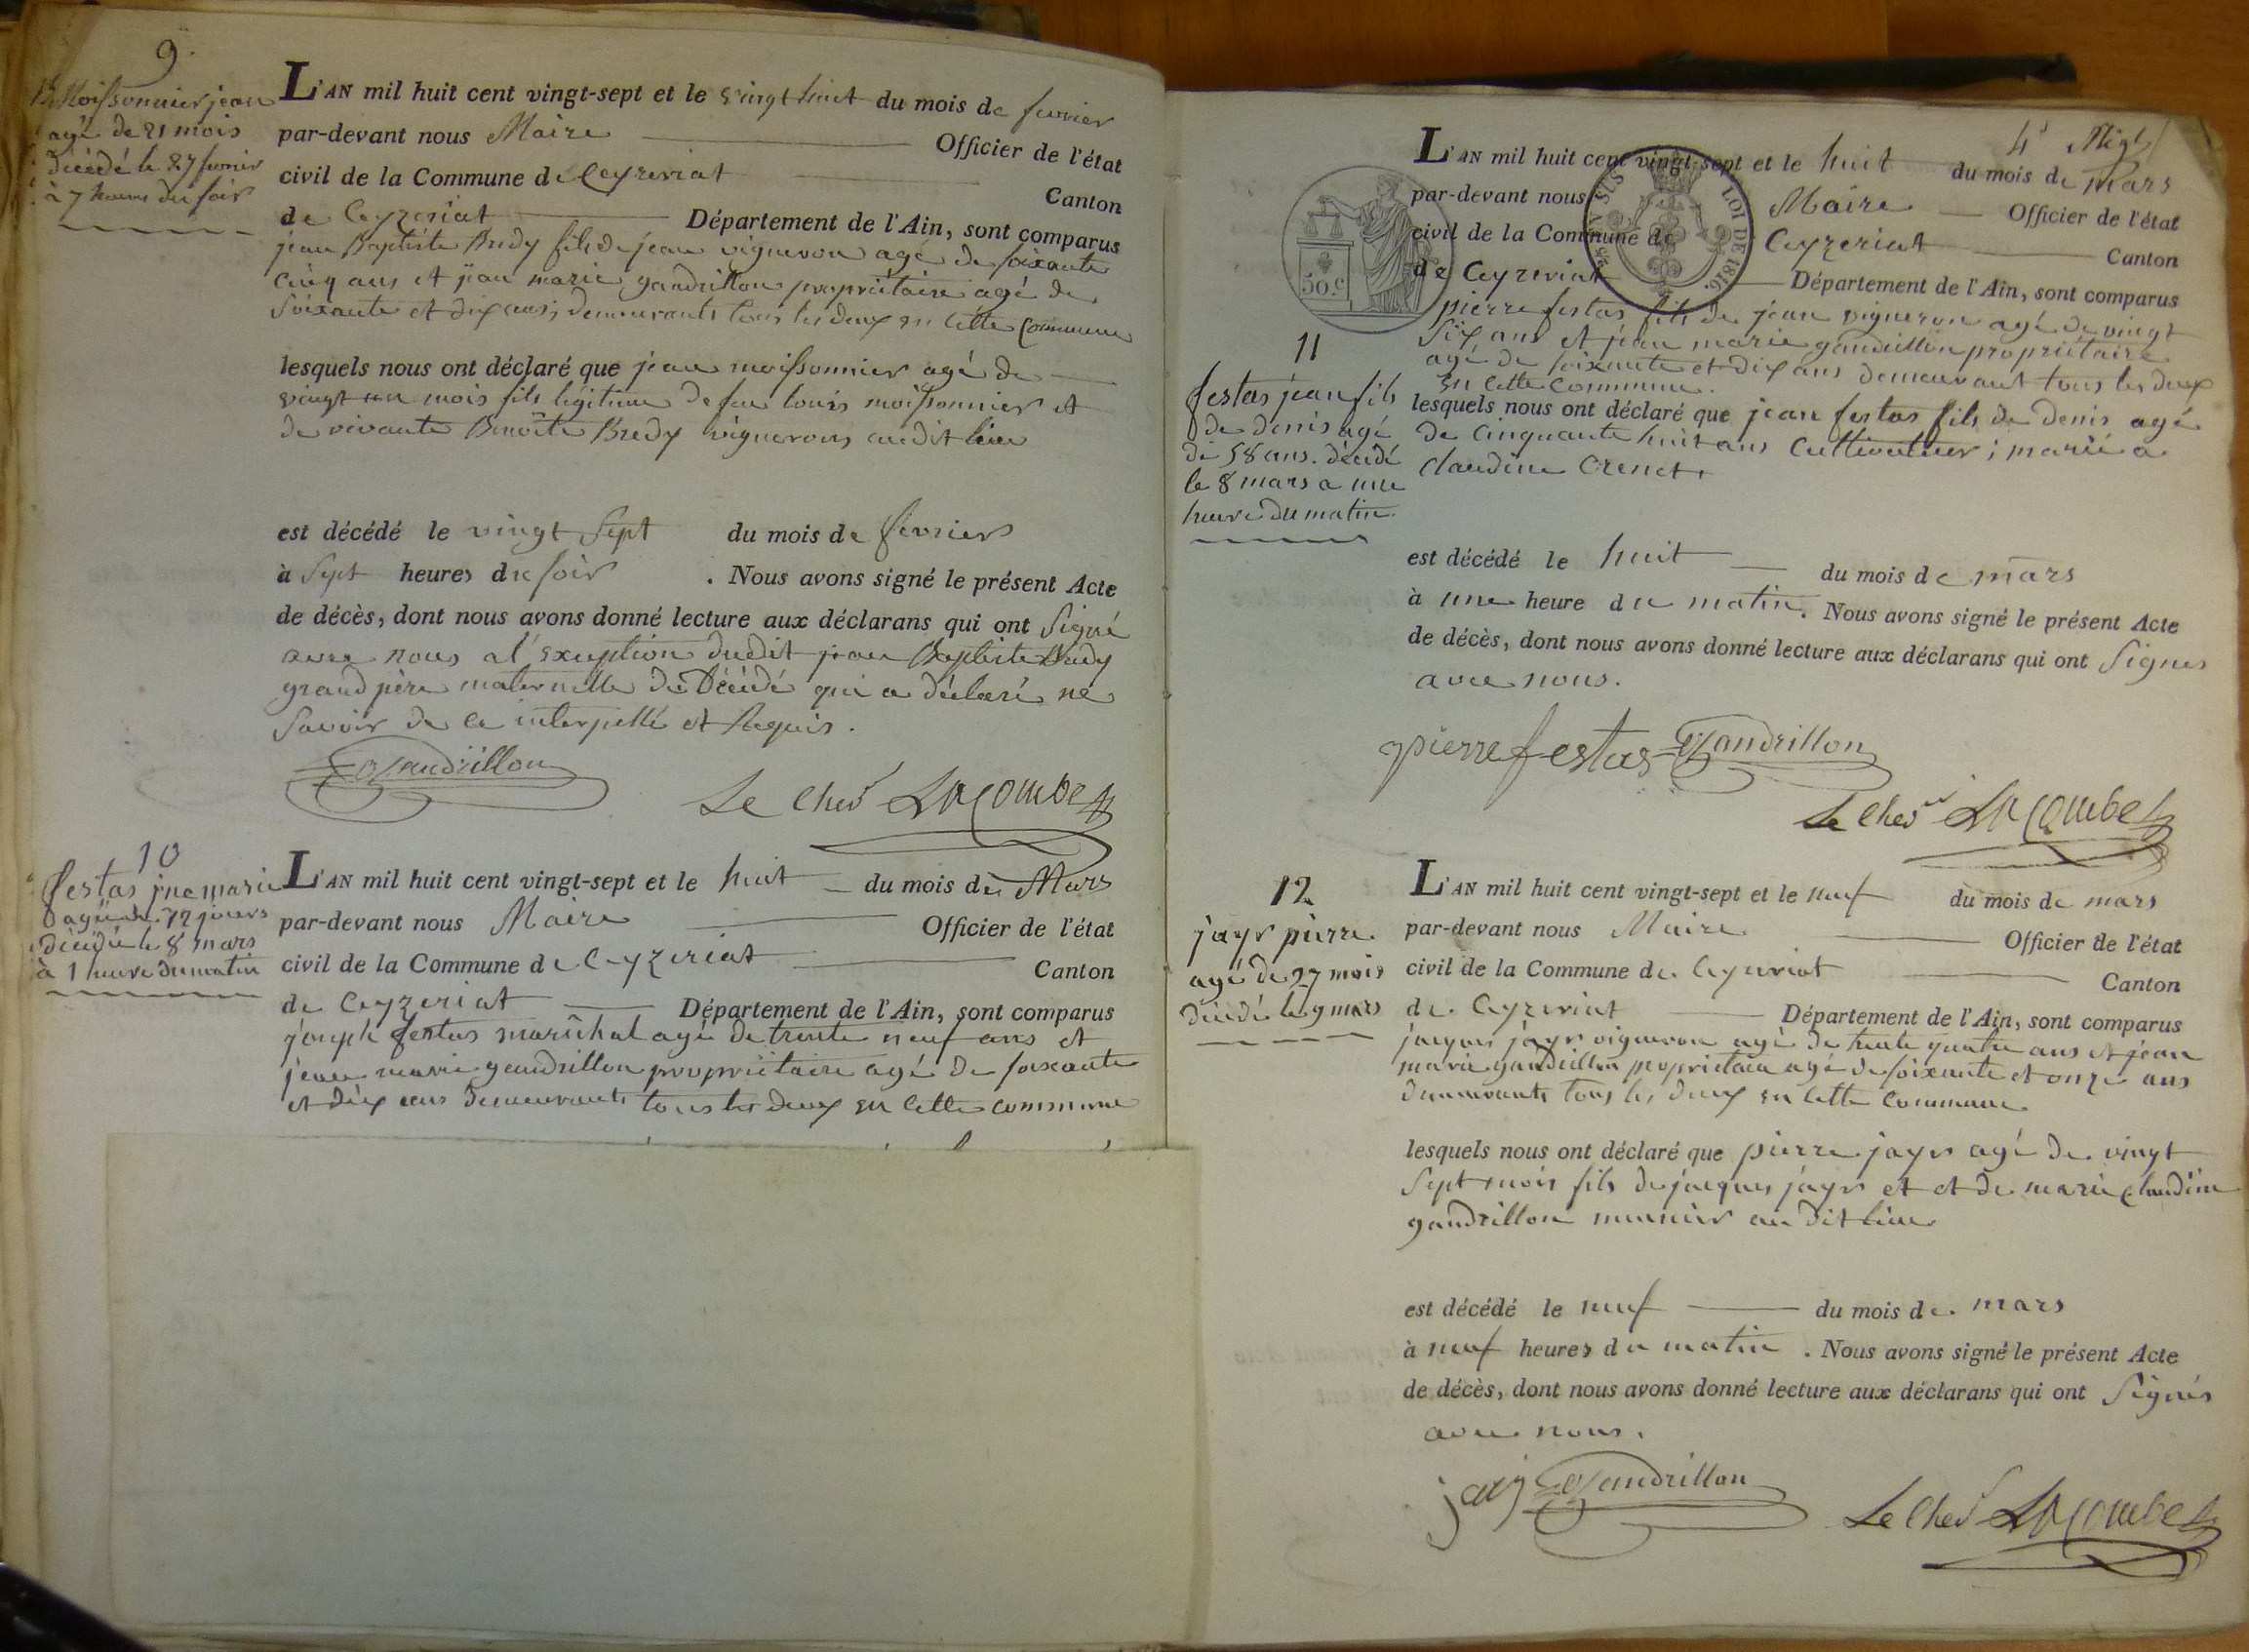 9.
Moissonnier jean
agé de 21 mois
décédé le 27 fevrier
à 7 heures du soir
L'AN mil huit cent vingt-sept et le vingt huit du mois de fevrier
par-devant nous Maire Officier de l'état
civil de la Commune de Ceyzeriat Canton
de Ceyzeriat Département de l'Ain, sont comparus
jean Baptiste Bredy fils de jean vigneron agé de soixante
cinq ans et jean marie gandrillon propriétaire agé de
soixante et dix ans, demeurants tous les deux en cette commune
lesquels nous ont déclaré que jean moissonnier agé de
vingt un mois fils légitime de feu louis moissonnier et
de vivante Benoite Bredy vignerons audit lieu
est décédé le vingt sept du mois de fevrier
à sept heures du soir . Nous avons signé le présent Acte
de décès, dont nous avons donné lecture aux déclarans qui ont signé
avec nous a l'exception dudit jean Baptiste Bredy
grand père maternelle du Décédé qui a déclaré ne
savoir de ce interpellé et Requis.
Gandrillon
Le Cher LACombe
10
festas jne marie
agée de 12 jours
décédée le 8 mars
à 1 heure du matin
L'AN mil huit cent vingt-sept et le huit du mois de Mars
par-devant nous Maire Officier de l'état
civil de la Commune de Ceyzeriat Canton
de Ceyzeriat Département de l'Ain, sont comparus
joseph festas maréchal agé de trente neuf ans et
jean marie gandrillon propriétaire agé de soixante
et dix ans demeurants tous les deux en cette commune
4e
L'AN mil huit cent vingt-sept et le huit du mois de mars
par-devant nous Maire Officier de l'état
civil de la Commune de Ceyzeriat Canton
de Ceyzeriat Département de l'Ain, sont comparus
50 c
LOI DE 1816.
pierre festas fils de jean vigneron agé de vingt
six ans et jean marie gandrillon propriétaire
agé de soixante et dix ans demeurant tous les deux
en cette commune.
11
festas jean fils
de denis agé
de 58 ans. décédé
le 8 mars a une
heure du matin.
lesquels nous ont déclaré que jean festas fils de Denis agé
de cinquante huit ans cultivateur; marié a
claudine Crenet.
est décédé le huit du mois de mars
à une heure du matin. Nous avons signé le présent Acte
de décès, dont nous avons donné lecture aux déclarans qui ont signes
avec nous.
pierre festas Gandrillon
Le Cher LACombe
12
jayr pierre
agé de 27 mois
décédé le 9 mars
L'AN mil huit cent vingt-sept et le neuf du mois de mars
par-devant nous Maire Officier de l'état
civil de la Commune de Ceyzeriat Canton
de Ceyzeriat Département de l'Ain, sont comparus
jacques jayr vigneron agé de trente quatre ans et jean
marie gandrillon proprietaire agé de soixante et onze ans
demeurants tous les deux en cette commune
lesquels nous ont déclaré que pierre jayr agé de vingt
sept mois fils de jacques jayr et et de marie claudine
gandrillon meunier au dit lieu
est décédé le neuf du mois de mars
à neuf heures du matin . Nous avons signé le présent Acte
de décès, dont nous avons donné lecture aux déclarans qui ont signés
avec nous.
jay Gandrillon
Le Cher LACombe